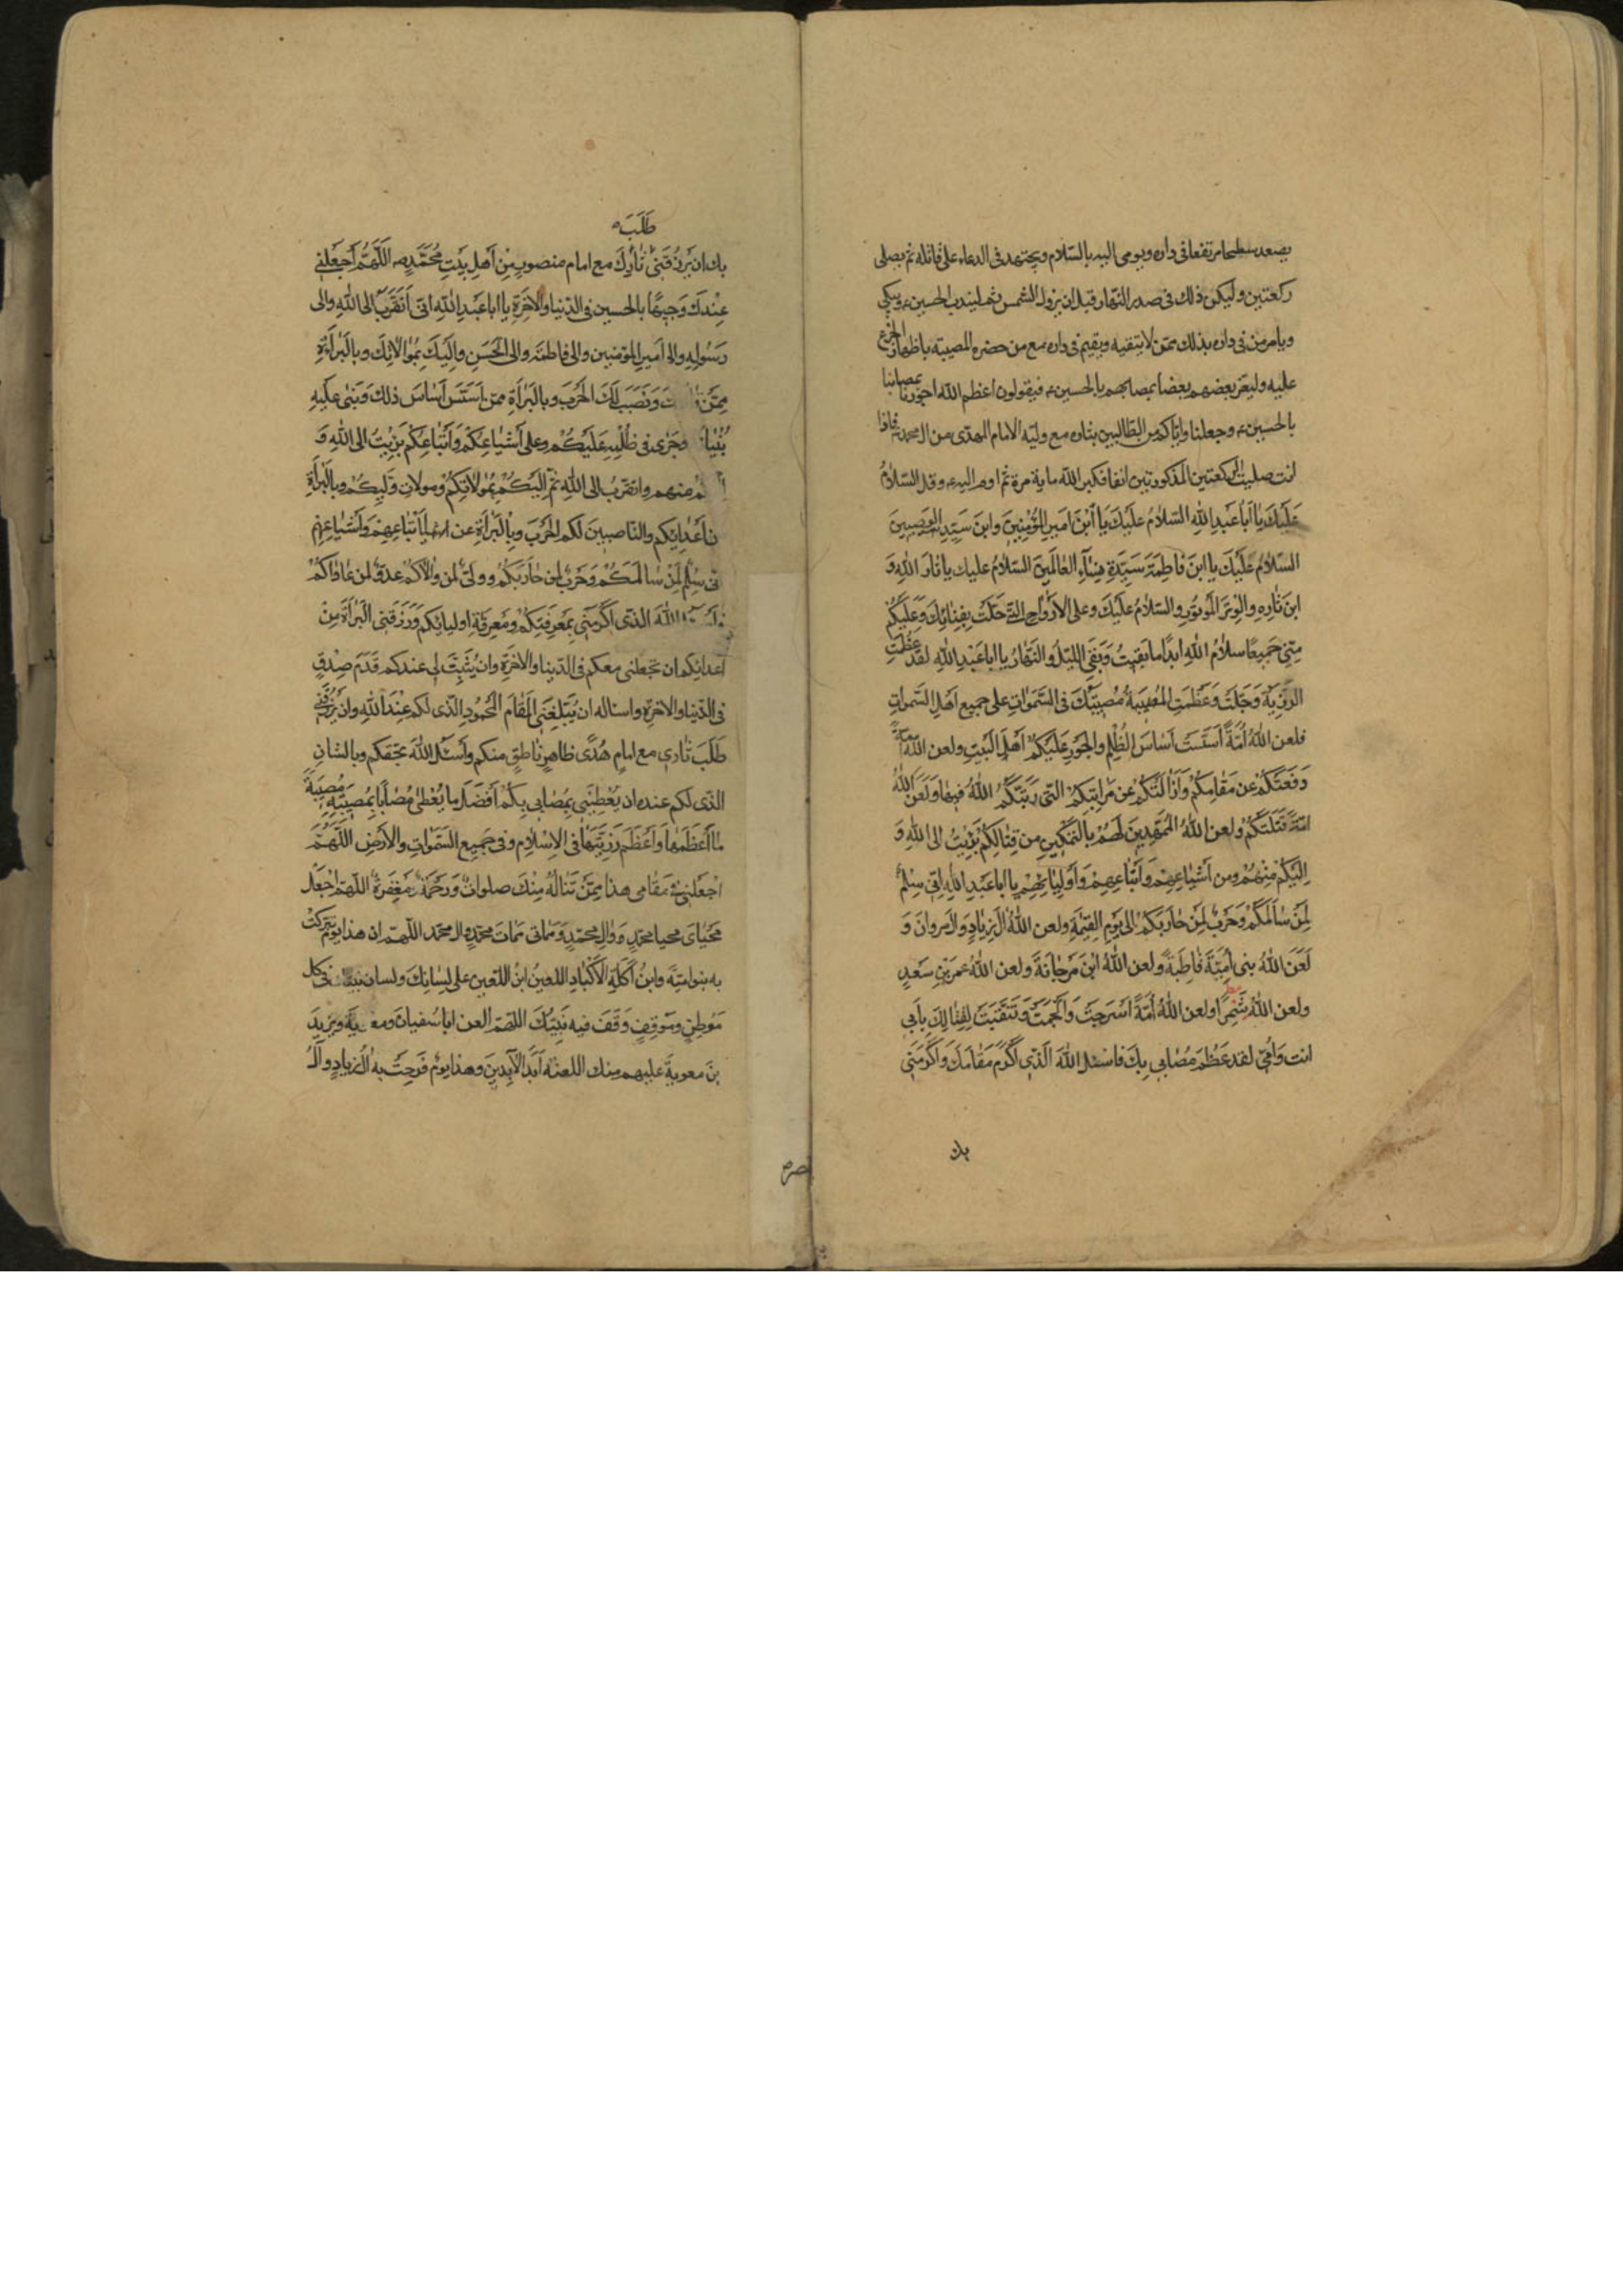 يصعد سطحا مرتفعا فى داره ويومى اليه بالسّلام ويجتهد فى الدعاء على قاتله ثم يصلى
ركعتين وليكن ذلك فى صدر النّهار قبل ان يزول الشمس ثم ليندب الحسين ع ويبكى
ويامر من فى داره بذلك ممّن لا يتقيه ويقيم فى داره مع من حضره المصيبة باظهار الجزع
عليه وليعز بعضهم بعضا بمصابهم بالحسين ع فيقولون اعظم الله اجورنا بمصابنا
بالحسين ع وجعلنا واياكم من الطالبين بثاره مع وليّه الامام المهدى من ال محمد ع فاذا
انت صليت الركعتين المذكورتين انفا فكبر الله ماية مرة ثم اوم اليه ع وقل السّلامُ
عَلَيكَ يا اَباعَبدِ اللهِ السّلامُ عَلَيكَ يَا ابْنَ اَميرِ المُؤْمِنِينَ وابنَ سَيّدِ الوَصِيينَ
السّلامُ عَلَيكَ يا ابنَ فاطِمَةَ سَيّدَةِ نِسَآءِ العَالَمينَ السّلامُ عليك يا ثارَ اللهِ وَ
ابنَ ثارِهِ وَالوِترَ المَوتُورِ والسّلامُ عَلَيكَ وعلى الاَرْواحِ الّتى حَلّتْ بِفِنائِكَ وَعَلَيكُم
مِنّى جَميعًا سلامُ اللهِ ابدًا ما بَقيتُ وَبَقِىَ اللّيلُ والنّهارُ يا ابا عَبْدِ اللهِ لقد عَظُمَتِ
الرّزِيّةُ وَجَلّتْ وَعَظُمَتِ المُصيبَةُ مُصيبَتُكَ فى السّمَواتِ على جميع اَهْلِ السّمواتِ
فلعن اللهُ اُمّةً اَسّسَتْ اَساسَ الظُلْمِ والجَوْرِ عَلَيْكُمْ اَهْلَ البَيتِ ولعن اللهُ اُمّةً
دَفَعَتْكُمْ عن مَقامِكُمْ وَاَزالَتْكُمْ عن مَراتِبِكُمُ التى رَتّبَكُمُ اللهُ فيها وَلَعَنَ اللهُ
امّةً قَتَلَتْكُمْ ولعن اللهُ المُمَهّدينَ لَهُمْ بِالتّمْكينِ من قِتالِكُمْ بَرِئْتُ الى اللهِ وَ
اِلَيْكُمْ مِنْهُمْ ومن اَشْياعِهِمْ وَاَتْباعِهِمْ وَاَوْلِيائِهِمْ يا اباعَبدِ اللهِ اِنّى سِلْمٌ
لِمَنْ سالَمَكُمْ وَحَرْبٌ لِمَنْ حارَبَكُمْ الى يَوْمِ القِيمَةِ ولعن اللهُ الَ زِيادٍ وَالَ مروانَ وَ
لَعَنَ اللهُ بنى اُمَيّةَ قاطِبَةً ولعن اللهُ ابْنَ مَرْجانَةَ ولعن اللهُ عمر بْنَ سَعدٍ
ولعن اللهُ شِمْراً ولعن اللهُ اُمّةً اَسْرَجَتْ وَاَلْجَمَتْ وَتَنَقّبَتْ لِقِتالِكَ بِاَبى
انت وَاُمّى لقد عَظُمَ مُصابى بِكَ فاسئل اللهَ الّذى اَكْرَمَ مَقامَكَ وَاَكْرَمَنى
بك
طَلَبَ
بك ان يَرْزُقَنى ثارِكَ مع امام منصورٍ مِنْ اَهلِ بَيْتِ مُحَمّدٍ ص اَللّهُمّ اجْعَلْنى
عِنْدَكَ وَجيهًا بالحسين فى الدّنيا والاخرَةِ يا اباعَبدِ اللهِ انّى اَتَقَرّبُ الى اللهِ والى
رَسُولِهِ والى اَميرِ المؤمنين والى فاطمة والى الحَسَنِ وَاِلَيكَ بِمُوالاتِكَ وبالبَراءَةِ
مِمّن وَنَصَبَ لَكَ الحَرْبَ وبالبَراءَةِ ممّن اَسّسَ اَساسَ ذلك وَبَنى عليهِ
بُنْيا وجَرى فى ظُلْمِهِ عَلَيْكُمْ وعلى اَشْياعِكُمْ وَاَتْباعِكُمْ بَرِئْتُ الى اللهِ وَ
منهم واتقرّبُ الى اللهِ ثمّ اِلَيْكُمْ بِمُوالاتِكُمْ ومُوالاةِ وَلِيّكُمْ وبالبَراءَةِ
اَعْدائِكم والنّاصبينَ لكم الحَرْبَ وَبِالْبَراءَةِ من اَتْباعِهِمْ وَاَشْياعِهِمْ
نّى سِلْمٌ لِمَنْ سالَمَكُمْ وَحَرْبٌ لمن حارَبَكُمْ وَوَلِىٌّ لمن والاكُمْ وعدوٌّ لمن عاداكُمْ
اللهَ الذى اَكْرَمَنى بِمَعْرِفَتِكُمْ ومَعْرِفَةِ اوليائكم وَرَزَقَنى البَراءَةَ مِنْ
اَعدائكم ان يجعلنى معكم فى الدّنيا والاخرةِ وان يُثَبّتَ لى عندكم قَدَمَ صِدْقٍ
فى الدّنيا والاخرةِ واساله ان يُبَلّغَنى المَقامَ المَحْمُودَ الّذى لكم عِنْدَ اللهِ وان يَرْزُقَنى
طَلَبَ ثارى مع اِمامٍ هُدًى ظاهِرٍ ناطِقٍ منكم وَاَسْئَلُ اللهَ بحقكم وبالشانِ
الّذى لكم عنده ان يُعْطِيَنى بِمُصابى بِكُمْ اَفْضَلَ ما يُعْطى مُصاباً بِمُصيبَتِهِ مُصِيبَةً
ما اَعْظَمَها وَاَعْظَمَ رَزِيّتَها فى الاِسْلامِ وفى جَميعِ السّمواتِ والاَرْضِ اَللّهُمّ
اجْعَلْنى فى مَقامى هذا مِمّنْ تَنالُهُ مِنْكَ صلواتٌ وَرَحْمَةٌ وَمَغْفِرَةٌ اللّهمّ اجْعَلْ
مَحْياىَ محيا محمّدٍ وَالِ محمّدٍ وَمَماتى مَماتَ محمّدٍ وال محمّد اللّهمّ ان هذا يومٌ تبرّكتْ
به بنو اميّة وابنُ اكِلَةِ الاَكْبادِ اللعينُ ابنُ اللّعينِ على لِسانِكَ ولسان نبيك فى كل
مَوْطِنٍ ومَوْقِفٍ وَقَفَ فيه نَبِيّكَ اللهمّ العن اباسُفيانَ ومعوية وَيَزيدَ
بنَ معويةَ عليهم منك اللعنةُ اَبَدَ الآبِدينَ وهذا يومٌ فَرِحَتْ به الُ زيادٍ والُ